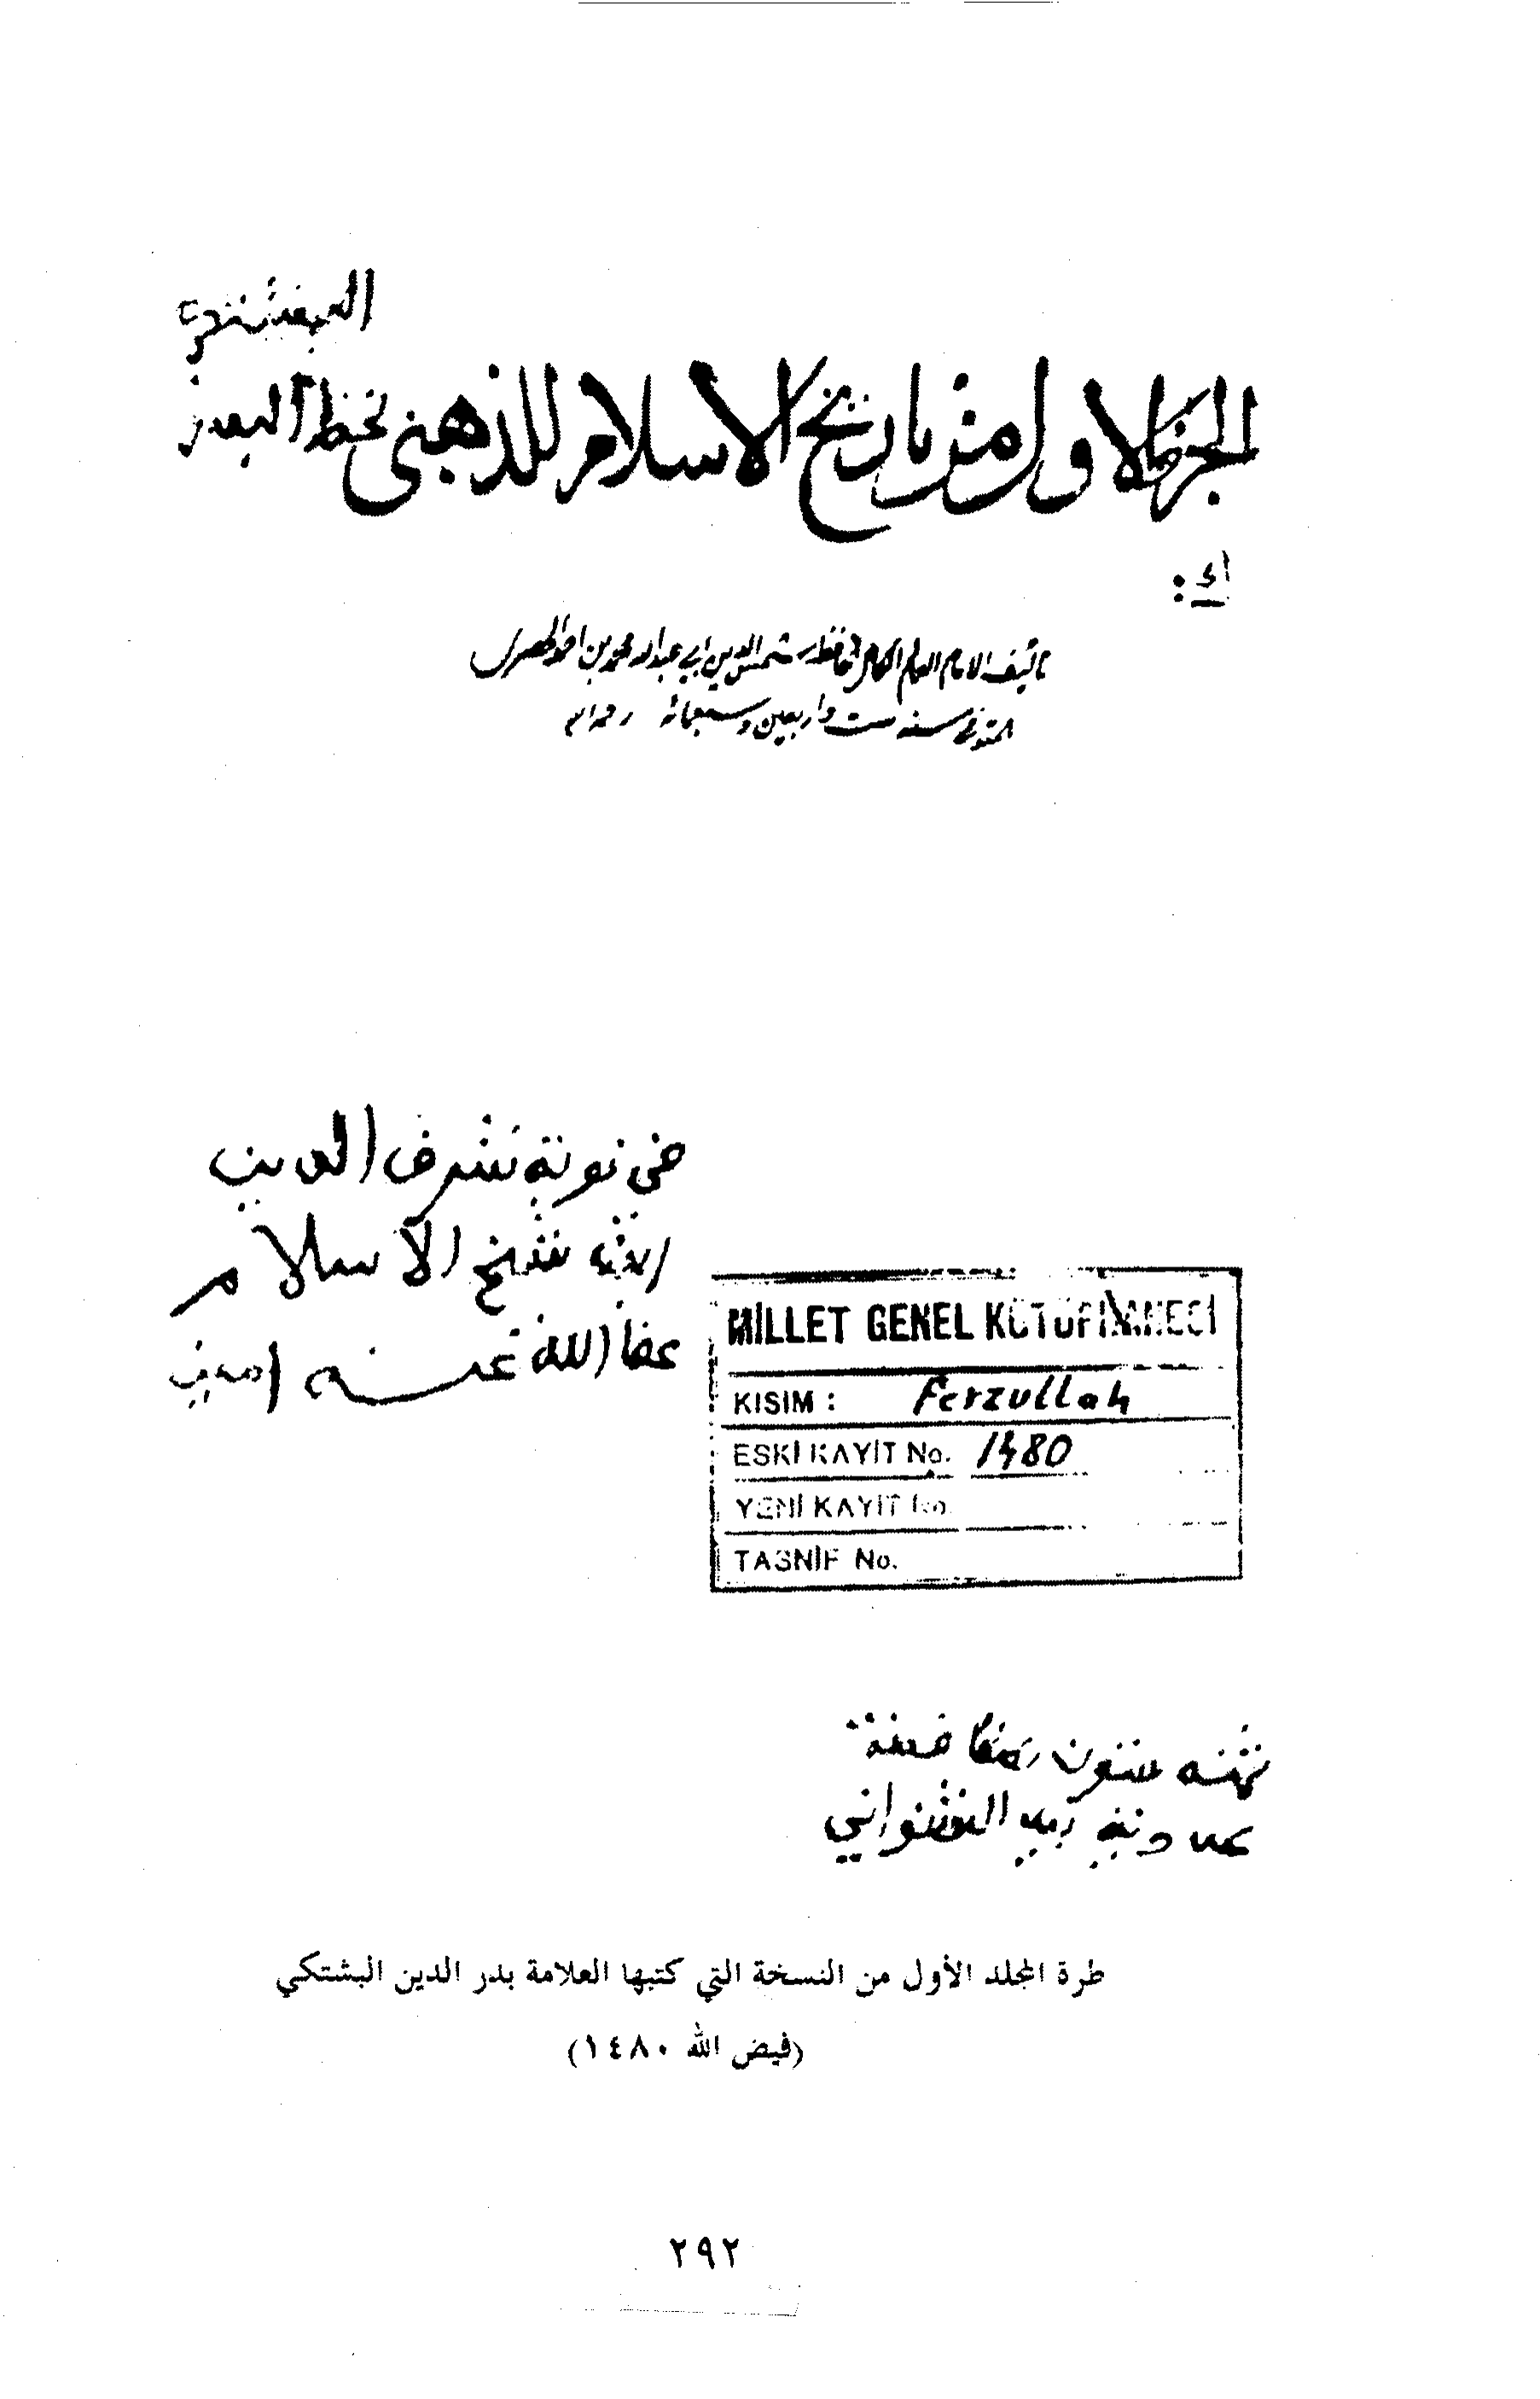 البشتكي
الجزء الاول من تاريخ الاسلام للذهبي بخط البدر
تأليف الامام العالم الحافظ شمس الدين ابي عبد الله محمد بن احمد
المتوفى سنه ست واربعين وسبعمائه رحمه الله
في نوبة شرف الدين
ابن شيخ الاسلام
عفا الله عنه امين
MİLLET GENEL KÜTÜPHANESİ
KISIM : Feyzullah
ESKİ KAYIT No. 1480
YENİ KAYIT No.
TASNİF No.
طرة المجلد الأول من النسخة التي كتبها العلامة بدر الدين البشتكي
(فيض الله ١٤٨٠)
٢٩٢